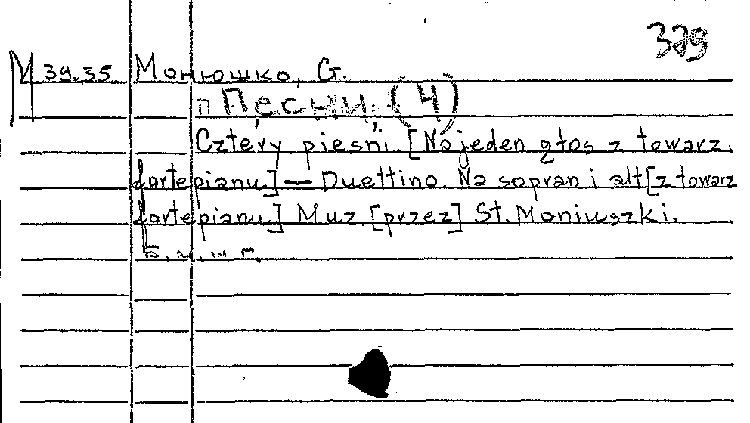 329
М 39.35 Монюшко, С.
Песни. (4)
Cztery pieśni. [Na jeden głos z towarz.
fortepianu.] — Duettino. Na sopran i alt [z towarz
fortepianu.] Muz. [przez] St. Moniuszki.
Б. м. и г.